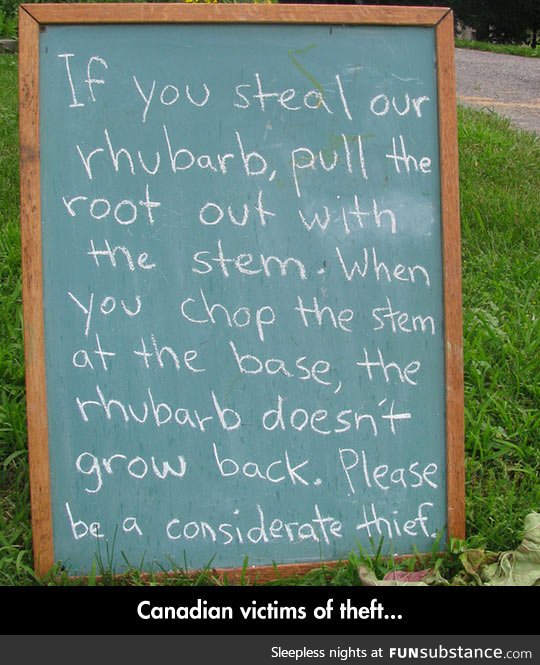 If you steal our
rhubarb, pull the
root out with
the stem. When
you chop the stem
at the base, the
rhubarb doesn't
grow back. Please
be a considerate thief.
Canadian victims of theft...
Sleepless nights at FUNsubstance.com